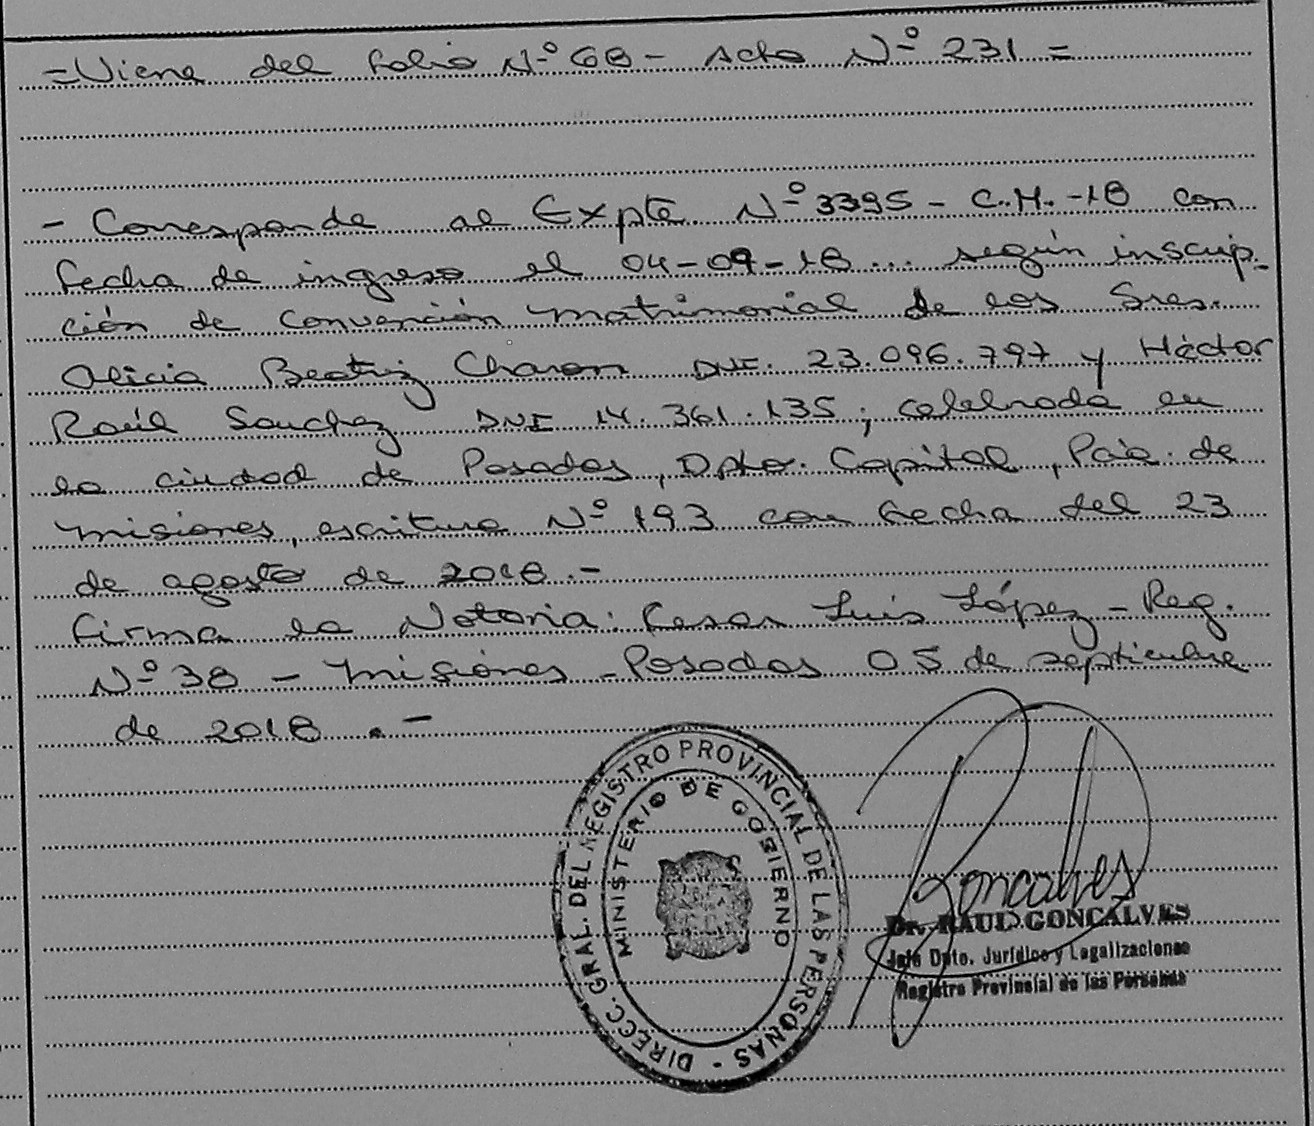 =Viene del folio Nº 68 - Acta Nº 231 =
- Corresponde al Expte Nº 3395 - C.M. -18 con
fecha de ingreso el 04-09-18... según inscrip-
ción de Convención Matrimonial de los Sres.
Alicia Beatriz Charon DNI. 23.096.797 y Héctor
Raúl Sanchez DNI 14.361.135; celebrada en
la ciudad de Posadas, Dpto. Capital, Pcia. de
Misiones, escritura Nº 193 con fecha del 23
de agosto de 2018.-
Firma la Notaria: Cesar Luis López - Reg.
Nº 38 - Misiones - Posadas 05 de septiembre
de 2018.-
DIRECC. GRAL. DEL REGISTRO PROVINCIAL DE LAS PERSONAS -
MINISTERIO DE GOBIERNO
Goncalves
Dr. RAUL GONCALVES
Jefe Dpto. Jurídico y Legalizaciones
Registro Provincial de las Personas